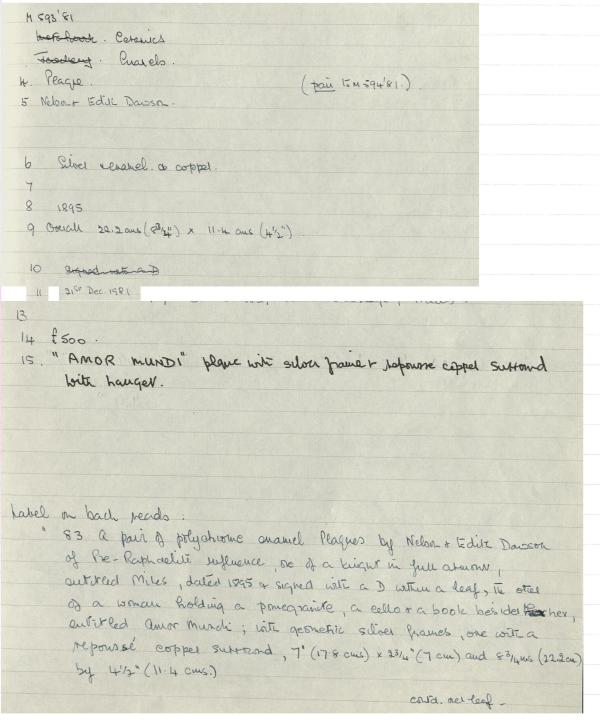 M 593'81
Ceramics
Enamels.
4. Plaque. (pair to M 594'81.)
5 Nelson & Edith Dawson.
6 Silver & enamel. & copper.
7
8 1895
9 Overall 22.2 cms (8¾") x 11.4 cms (4½")
10 Signed with a D
11 21st Dec. 1981
13
14 £500.
15. "AMOR MUNDI" plaque with silver frame & repousse copper surround
with hanger.
Label on back reads:
"83 A pair of polychrome enamel Plaques by Nelson & Edith Dawson
of Pre-Raphaelite influence, one of a knight in full armour,
entitled Miles, dated 1895 & signed with a D within a leaf, the other
of a woman holding a pomegranite, a cello & a book beside her,
entitled Amor Mundi; with geometric silver frames, one with a
repoussé copper surround, 7" (17.8 cms) x 2¾" (7 cm) and 8¾ ins (22.2 cm)
by 4½" (11.4 cms.)
contd. over leaf -